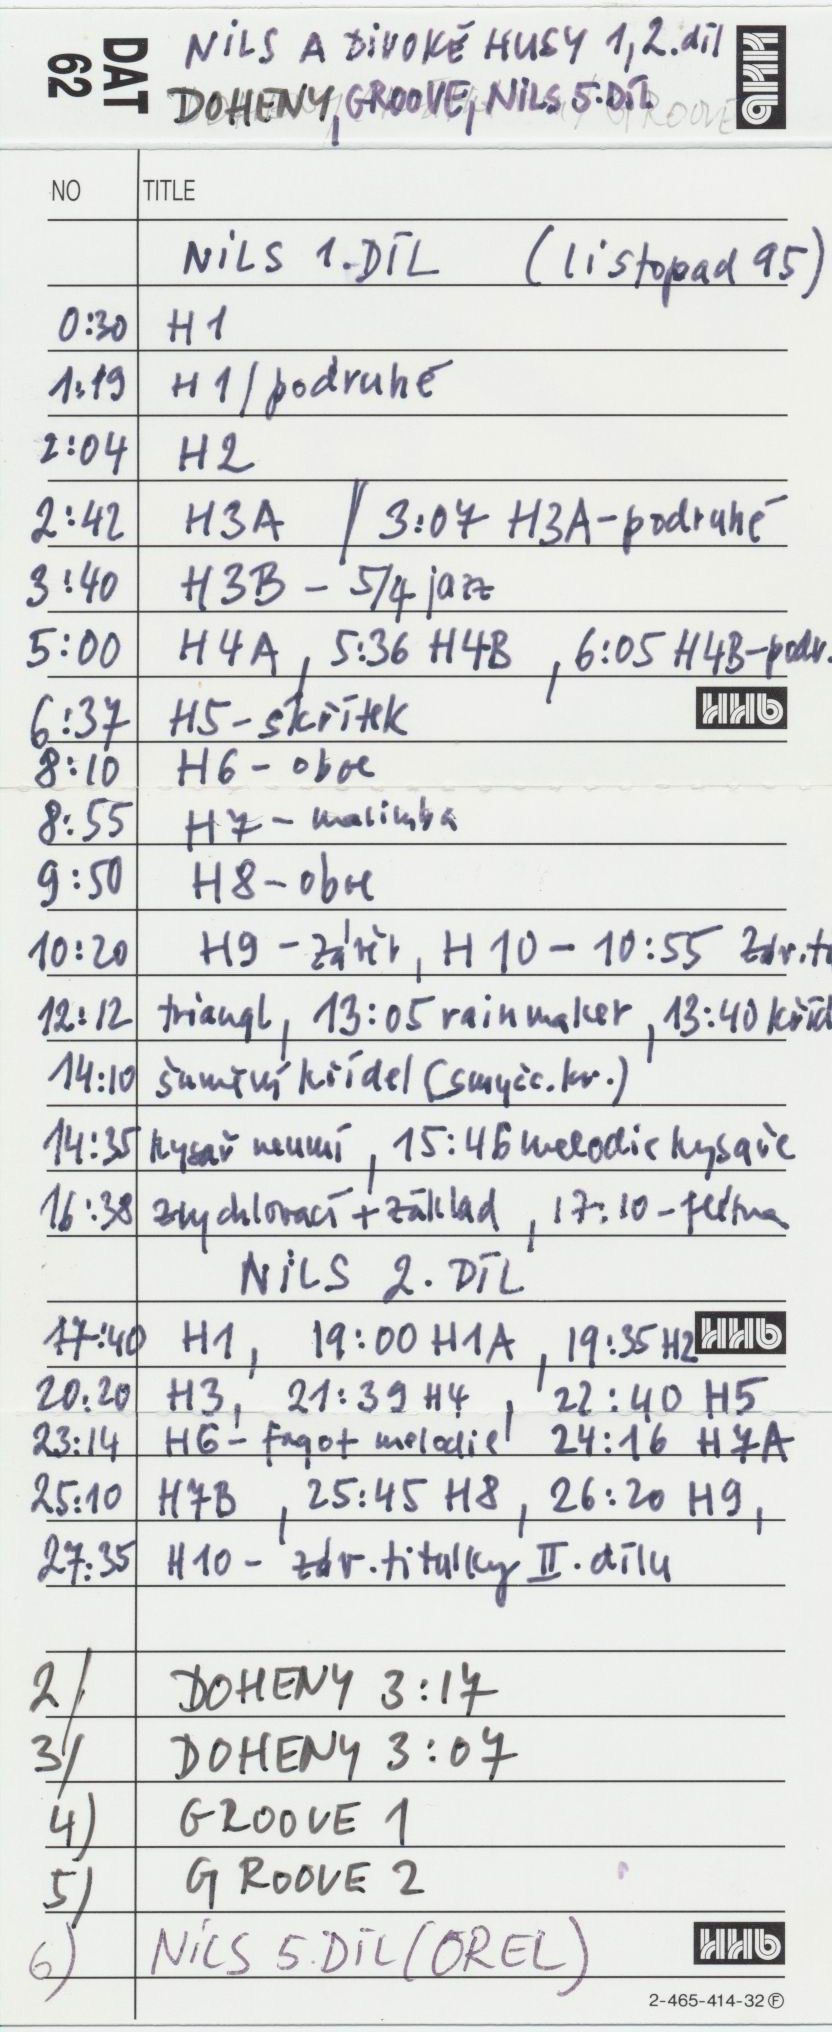 DAT 62
NiLS A DiVOKÉ HUSY 1, 2. díl
DOHENY, GROOVE, NiLS 5. DÍL
GROOVE
NO TITLE
NiLS 1. DÍL (listopad 95)
0:30 H1
1:19 H1/podruhé
2:04 H2
2:42 H3A / 3:07 H3A-podruhé
3:40 H3B - 5/4 jazz
5:00 H4A, 5:36 H4B, 6:05 H4B-podr.
6:37 H5-skřítek
8:10 H6 - oboe
8:55 H7 - malimba
9:50 H8 - oboe
10:20 H9 - závěr, H10 - 10:55 Zdv.ti
12:12 triangl, 13:05 rainmaker, 13:40 kříd
14:10 šumění křídel (smyčc. kv.)
14:35 krysař neumí, 15:46 melodie krysaře
16:38 zrychlovací + základ, 17:10 - flétna
NiLS 2. DÍL
17:40 H1, 19:00 H1A, 19:35 H2
20:20 H3, 21:39 H4, 22:40 H5
23:14 H6 - fagot melodie 24:16 H7A
25:10 H7B, 25:45 H8, 26:20 H9,
27:35 H10 - zdv. titulky II. dílu
2/ DOHENY 3:17
3/ DOHENY 3:07
4) GROOVE 1
5) GROOVE 2
6) NiLS 5. DÍL (OREL)
2-465-414-32 Ⓕ